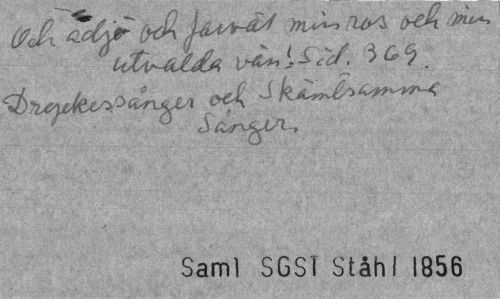 Och adjö och farväl min ros och min
utvalda vän! Sid. 369.
Dryckessånger och Skämtsamma
Sånger.
Saml SGST Ståhl 1856